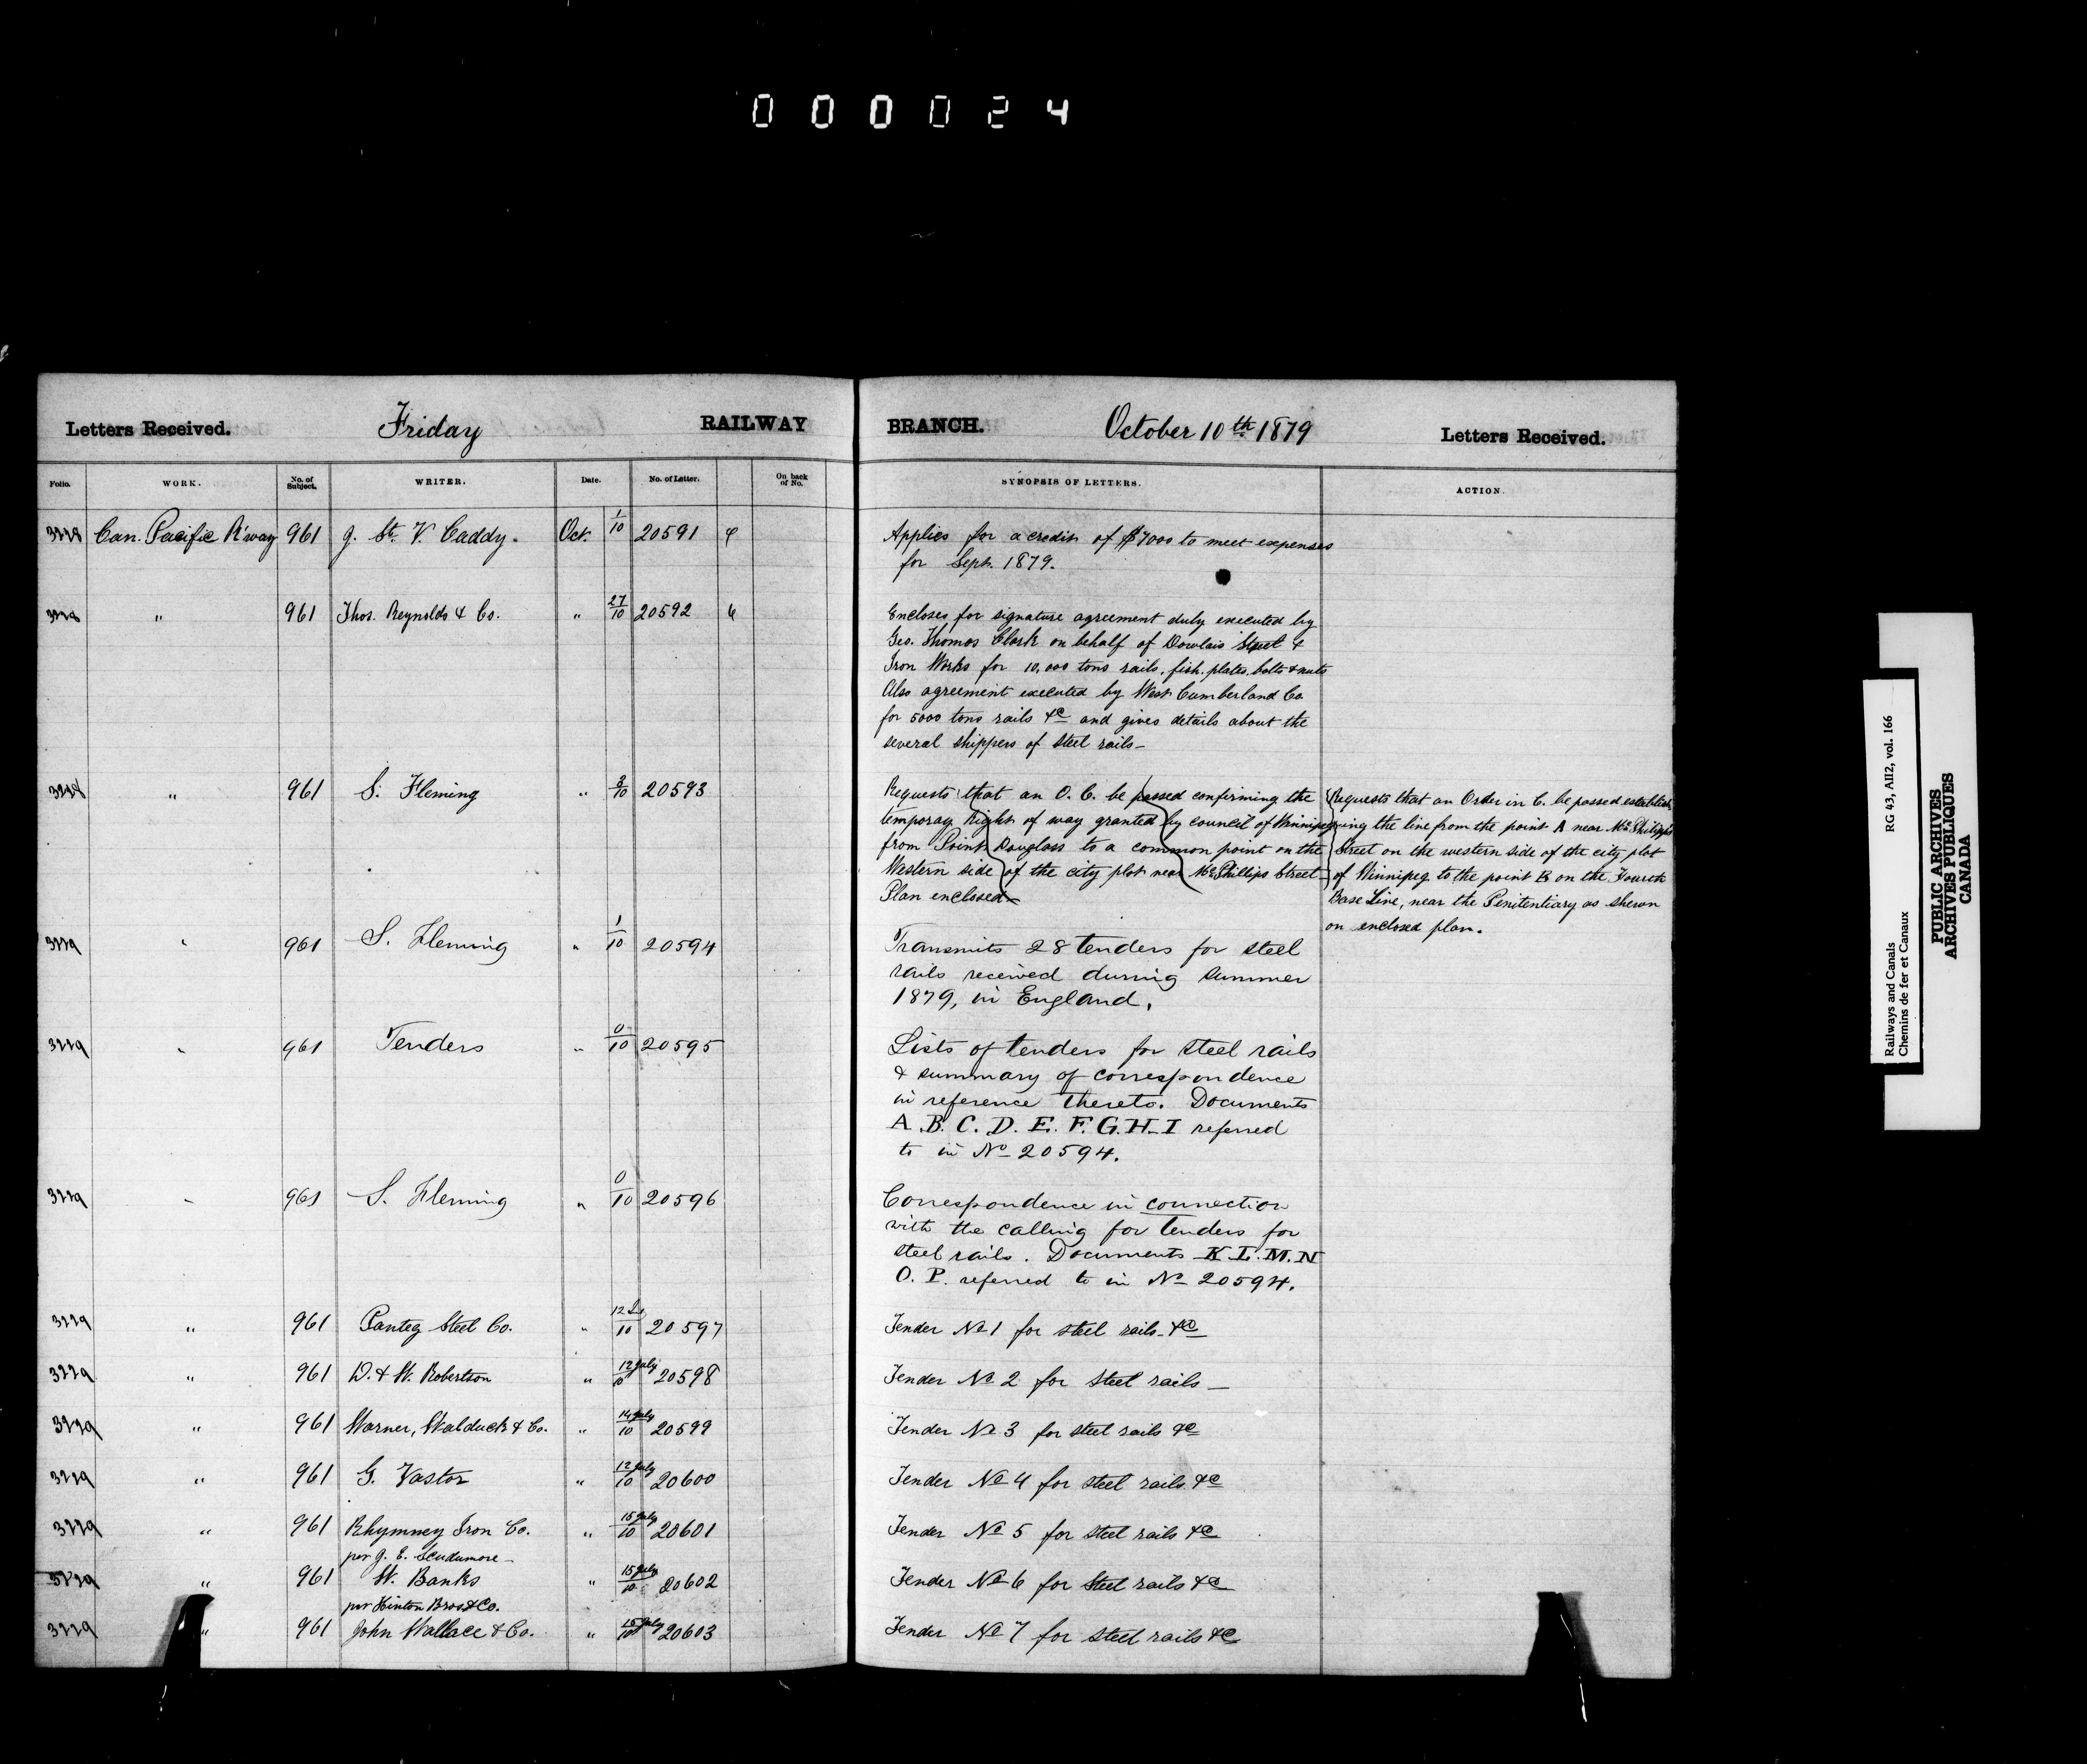 000024
Letters Received. Friday RAILWAY BRANCH. October 10th 1879 Letters Received.
Folio. WORK. No. of Subject. WRITER. Date. No. of Letter. On back of No. SYNOPSIS OF LETTERS. ACTION.
3228 Can. Pacific R'way 961 J. St. V. Caddy. Oct. 1/10 20591 Applies for a credit of $7000 to meet expenses
for Sept. 1879.
3228 " 961 Thos. Reynolds & Co. " 27/10 20592 Encloses for signature agreement duly executed by
Geo. Thomas Clark on behalf of Dowlais Steel &
Iron Works for 10,000 tons rails, fish plates, bolts & nuts
Also agreement executed by West Cumberland Co.
for 5000 tons rails &c and gives details about the
several shippers of steel rails—
3228 " 961 S. Fleming " 10 20593 Requests that an O. C. be passed confirming the
temporay right of way granted by council of Winnipeg
from Point Douglass to a common point on the
Western side of the city plot near McPhillips Street—
Plan enclosed—
Requests that an Order in C. be passed establish
ing the line from the point A near McPhilips
Street on the western side of the city plot
of Winnipeg to the point B on the Fourth
Base Line, near the Penitentiary as shewn
on enclosed plan.
3229 " 961 S. Fleming " 1/10 20594 Transmits 28 tenders for steel
rails received during summer
1879, in England.
3229 " 961 Tenders " 0/10 20595 Lists of tenders for steel rails
& summary of correspondence
in reference thereto. Documents
A. B. C. D. E. F. G. H. I referred
to in No 20594.
3229 " 961 S. Fleming " 0/10 20596 Correspondence in connection
with the calling for tenders for
steel rails. Documents K L. M. N
O. P. referred to in No 20594.
3229 " 961 Panteg Steel Co. " 12/10 20597 Tender No 1 for steel rails &c
3229 " 961 D. & W. Robertson " 12 July/10 20598 Tender No 2 for steel rails—
3229 " 961 Warner, Walduck & Co. " 14 July/10 20599 Tender No 3 for steel rails &c
3229 " 961 G. Vastor " 12 July/10 20600 Tender No 4 for steel rails &c
3229 " 961 Rhymney Iron Co. " 15 July/10 20601 Tender No 5 for steel rails &c
per J. E. Scudamore—
3229 " 961 W. Banks " 15 July/10 20602 Tender No 6 for steel rails &c
per Hinton Bros & Co.
3229 " 961 John Wallace & Co. " 15 July/10 20603 Tender No 7 for steel rails &c
Railways and Canals RG 43, AII2, vol. 166
Chemins de fer et Canaux
PUBLIC ARCHIVES
ARCHIVES PUBLIQUES
CANADA